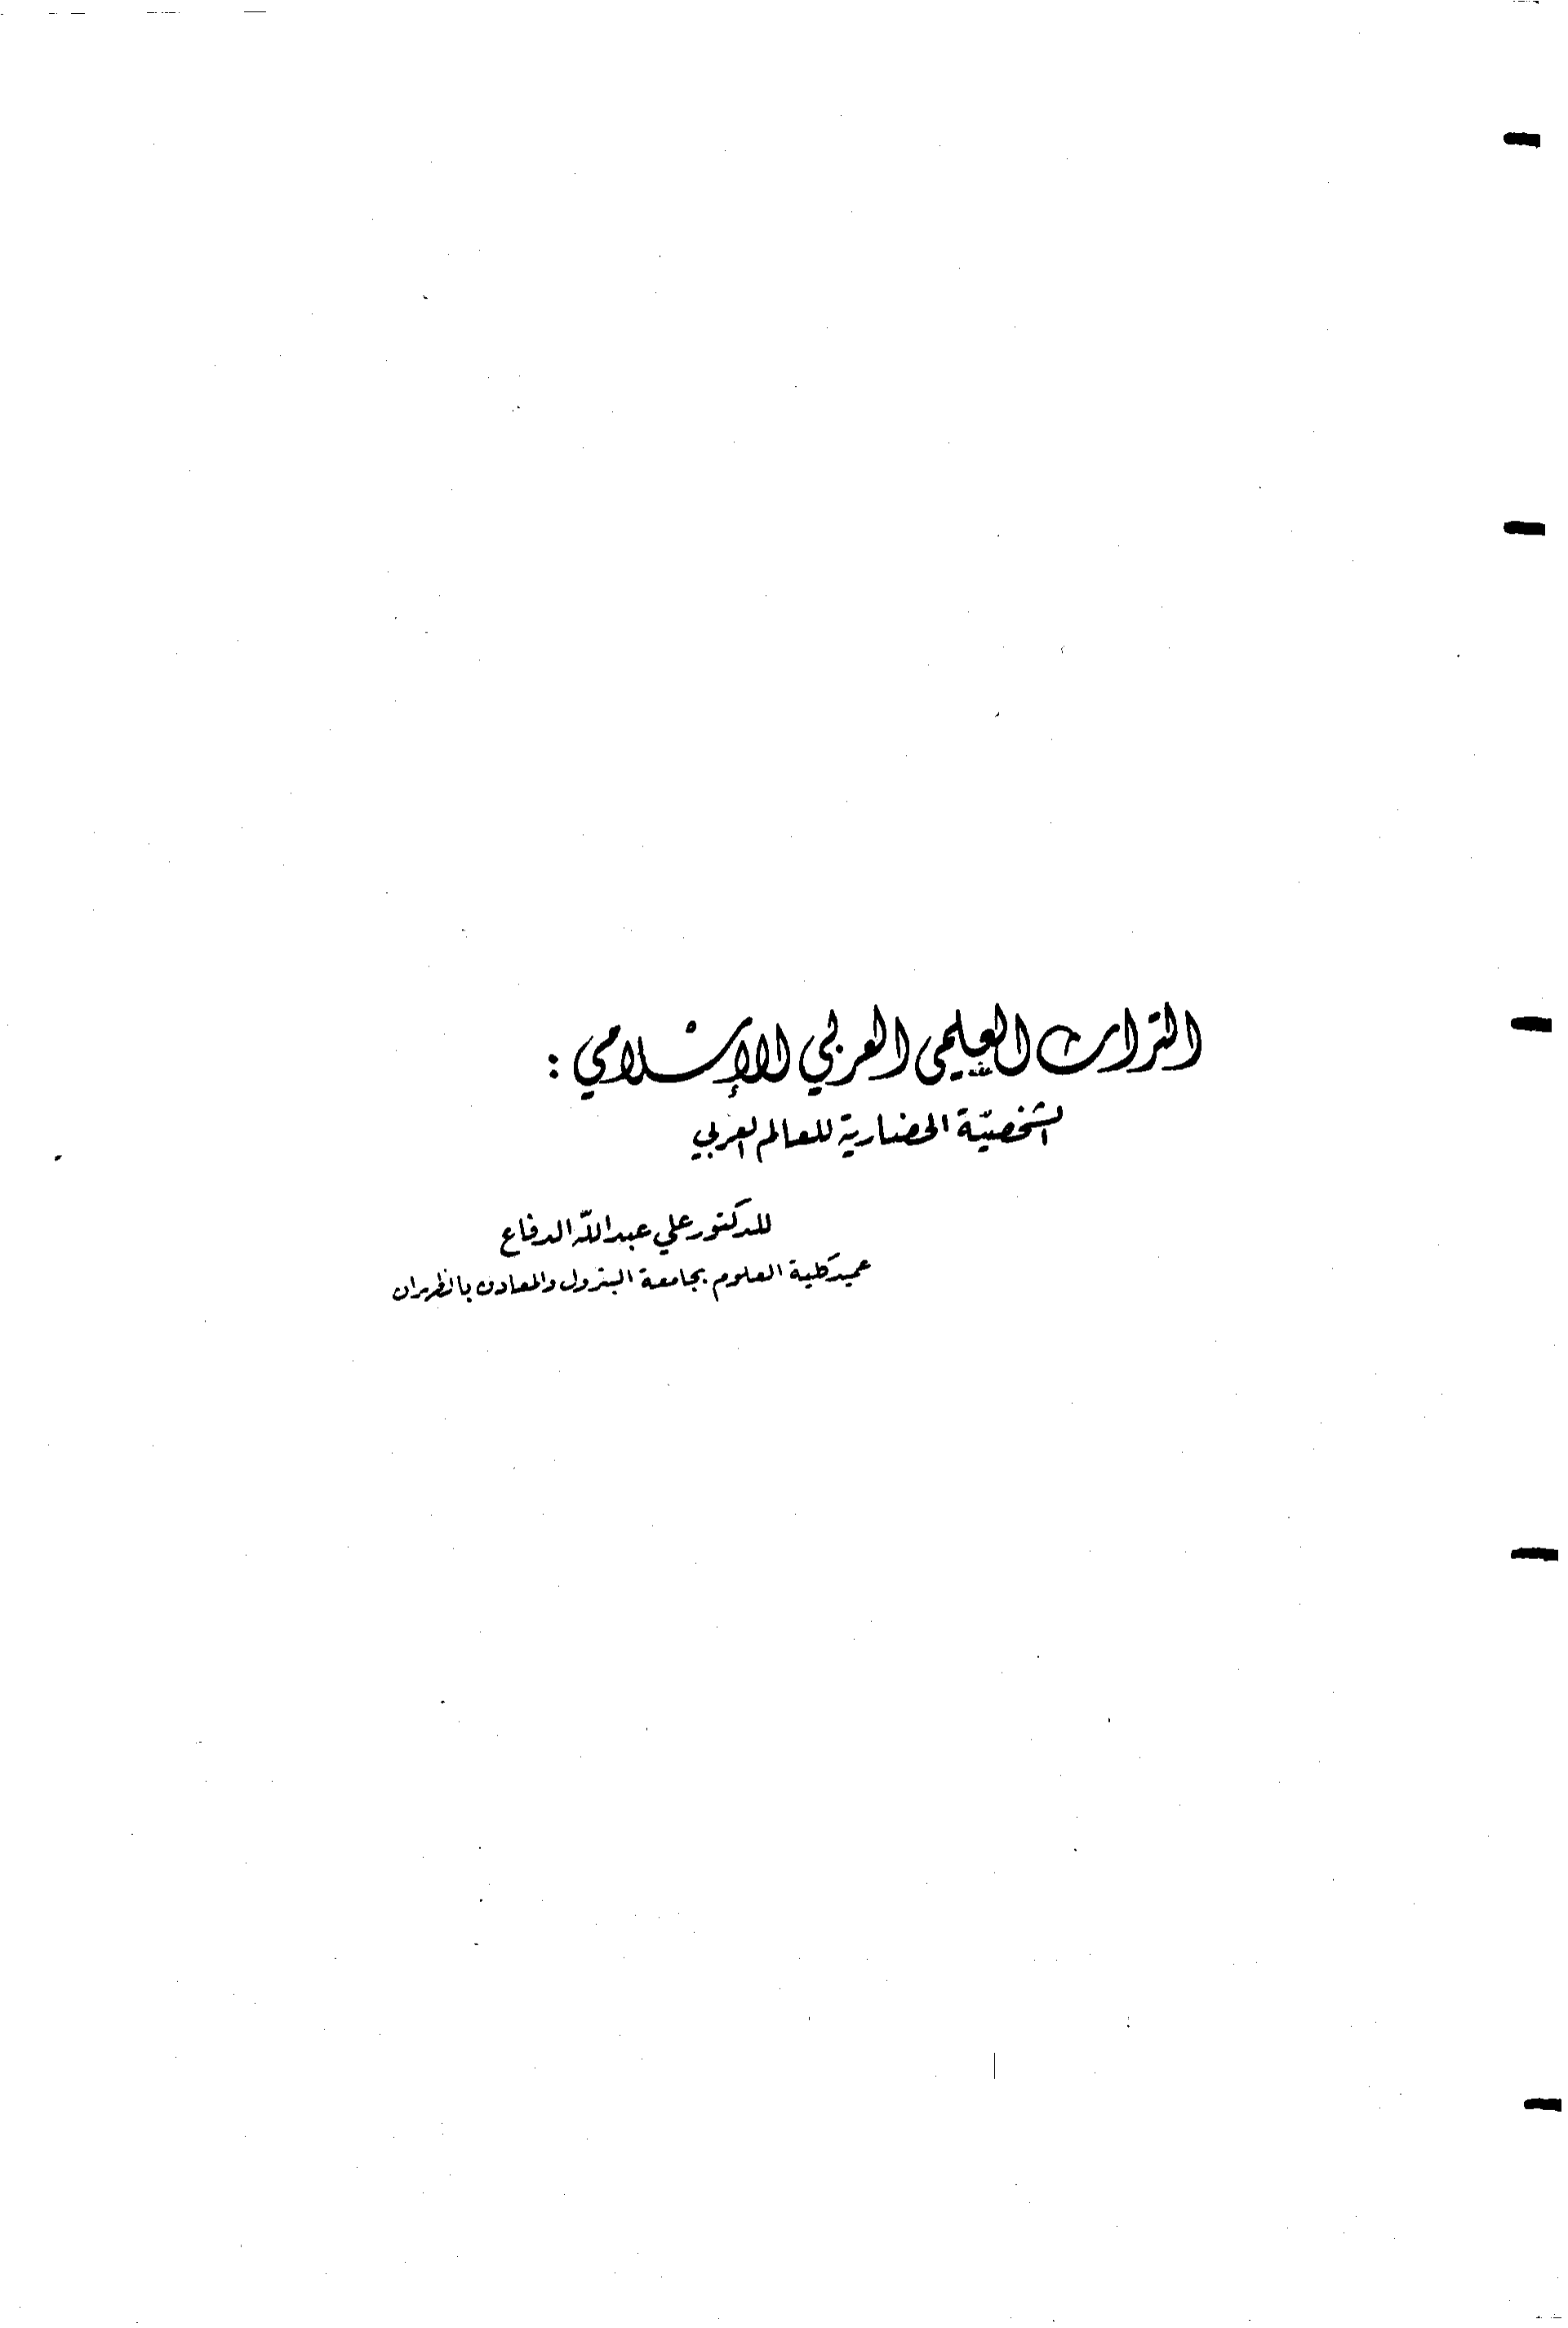 التراث العلمي العربي الإسلامي :
الشخصيّة الحضارية للعالم العربي
للدكتور علي عبدالله الدفاع
عميد كلية العلوم بجامعة البترول والمعادن بالظهران